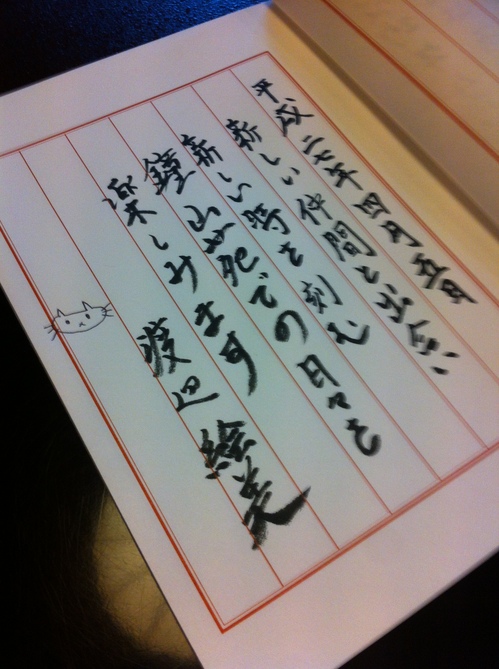 平成二七年四月五日
新しい仲間と出会い
新しい時を刻む
鐘山苑での日々を
楽しみます
渡辺 絵美